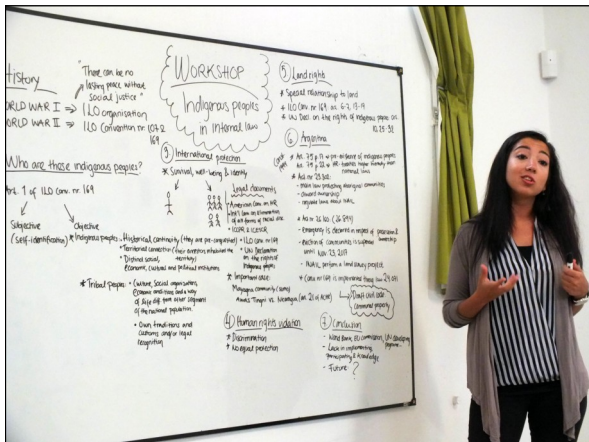 History
"There can be no
lasting peace without
social justice"
WORLD WAR I ⇒ ILO organisation
WORLD WAR II ⇒ ILO Convention nr 107 &
169
Who are those indigenous peoples?
Art. 1 of ILO conv. nr. 169
Subjective
(self-identification)
Objective
* Indigenous peoples
- Historical continuity (they are pre-conquest)
• Territorial connection (their ancestors inhabited the
territory)
• Distinct social,
economic, cultural and political institutions
* Tribal peoples
• Culture, Social organization,
economic conditions and way of
life different from other segment
of the national population.
• Own traditions and
customs and/or legal
recognition
WORKSHOP
Indigenous peoples
in internal law
③ International protection
* Survival, well-being & identity
Legal documents
• American Conv. on HR
• Int'l Conv. on Elimination
of all forms of Racial
• ICCPR & ICESCR
• ILO conv. nr 169
• UN Declaration
on the rights of
Indigenous peoples
* Important case:
Mayagna community (Sumo)
Awas Tingni vs. Nicaragua (art. 21 of ACHR)
④ Human rights violation
* Discrimination
* No equal protection
⑤ Land rights
* Special relationship to land
* ILO Conv. nr 169
* UN Decl. on the rights of indigenous peoples
⑥ Argentina
* Art. 75 p. 17 → pre-existence of indigenous peoples
* Art. 75 p. 22 → treaties higher hierarchy than
national laws
* Act nr 23.302
- main law protecting aboriginal communities
- land ownership
- regulate
* Act nr 26.160
- emergency is declared in respect of possession &
- eviction of communities is suspended
until Nov. 23, 2017
- INAI perform a land survey
* Conv nr 169 is implemented
Draft civil code
Communal property
⑦ Conclusion
- World Bank, EU commission, UN developing
programme...
- Lack in implementing,
participating & knowledge
- Future ?